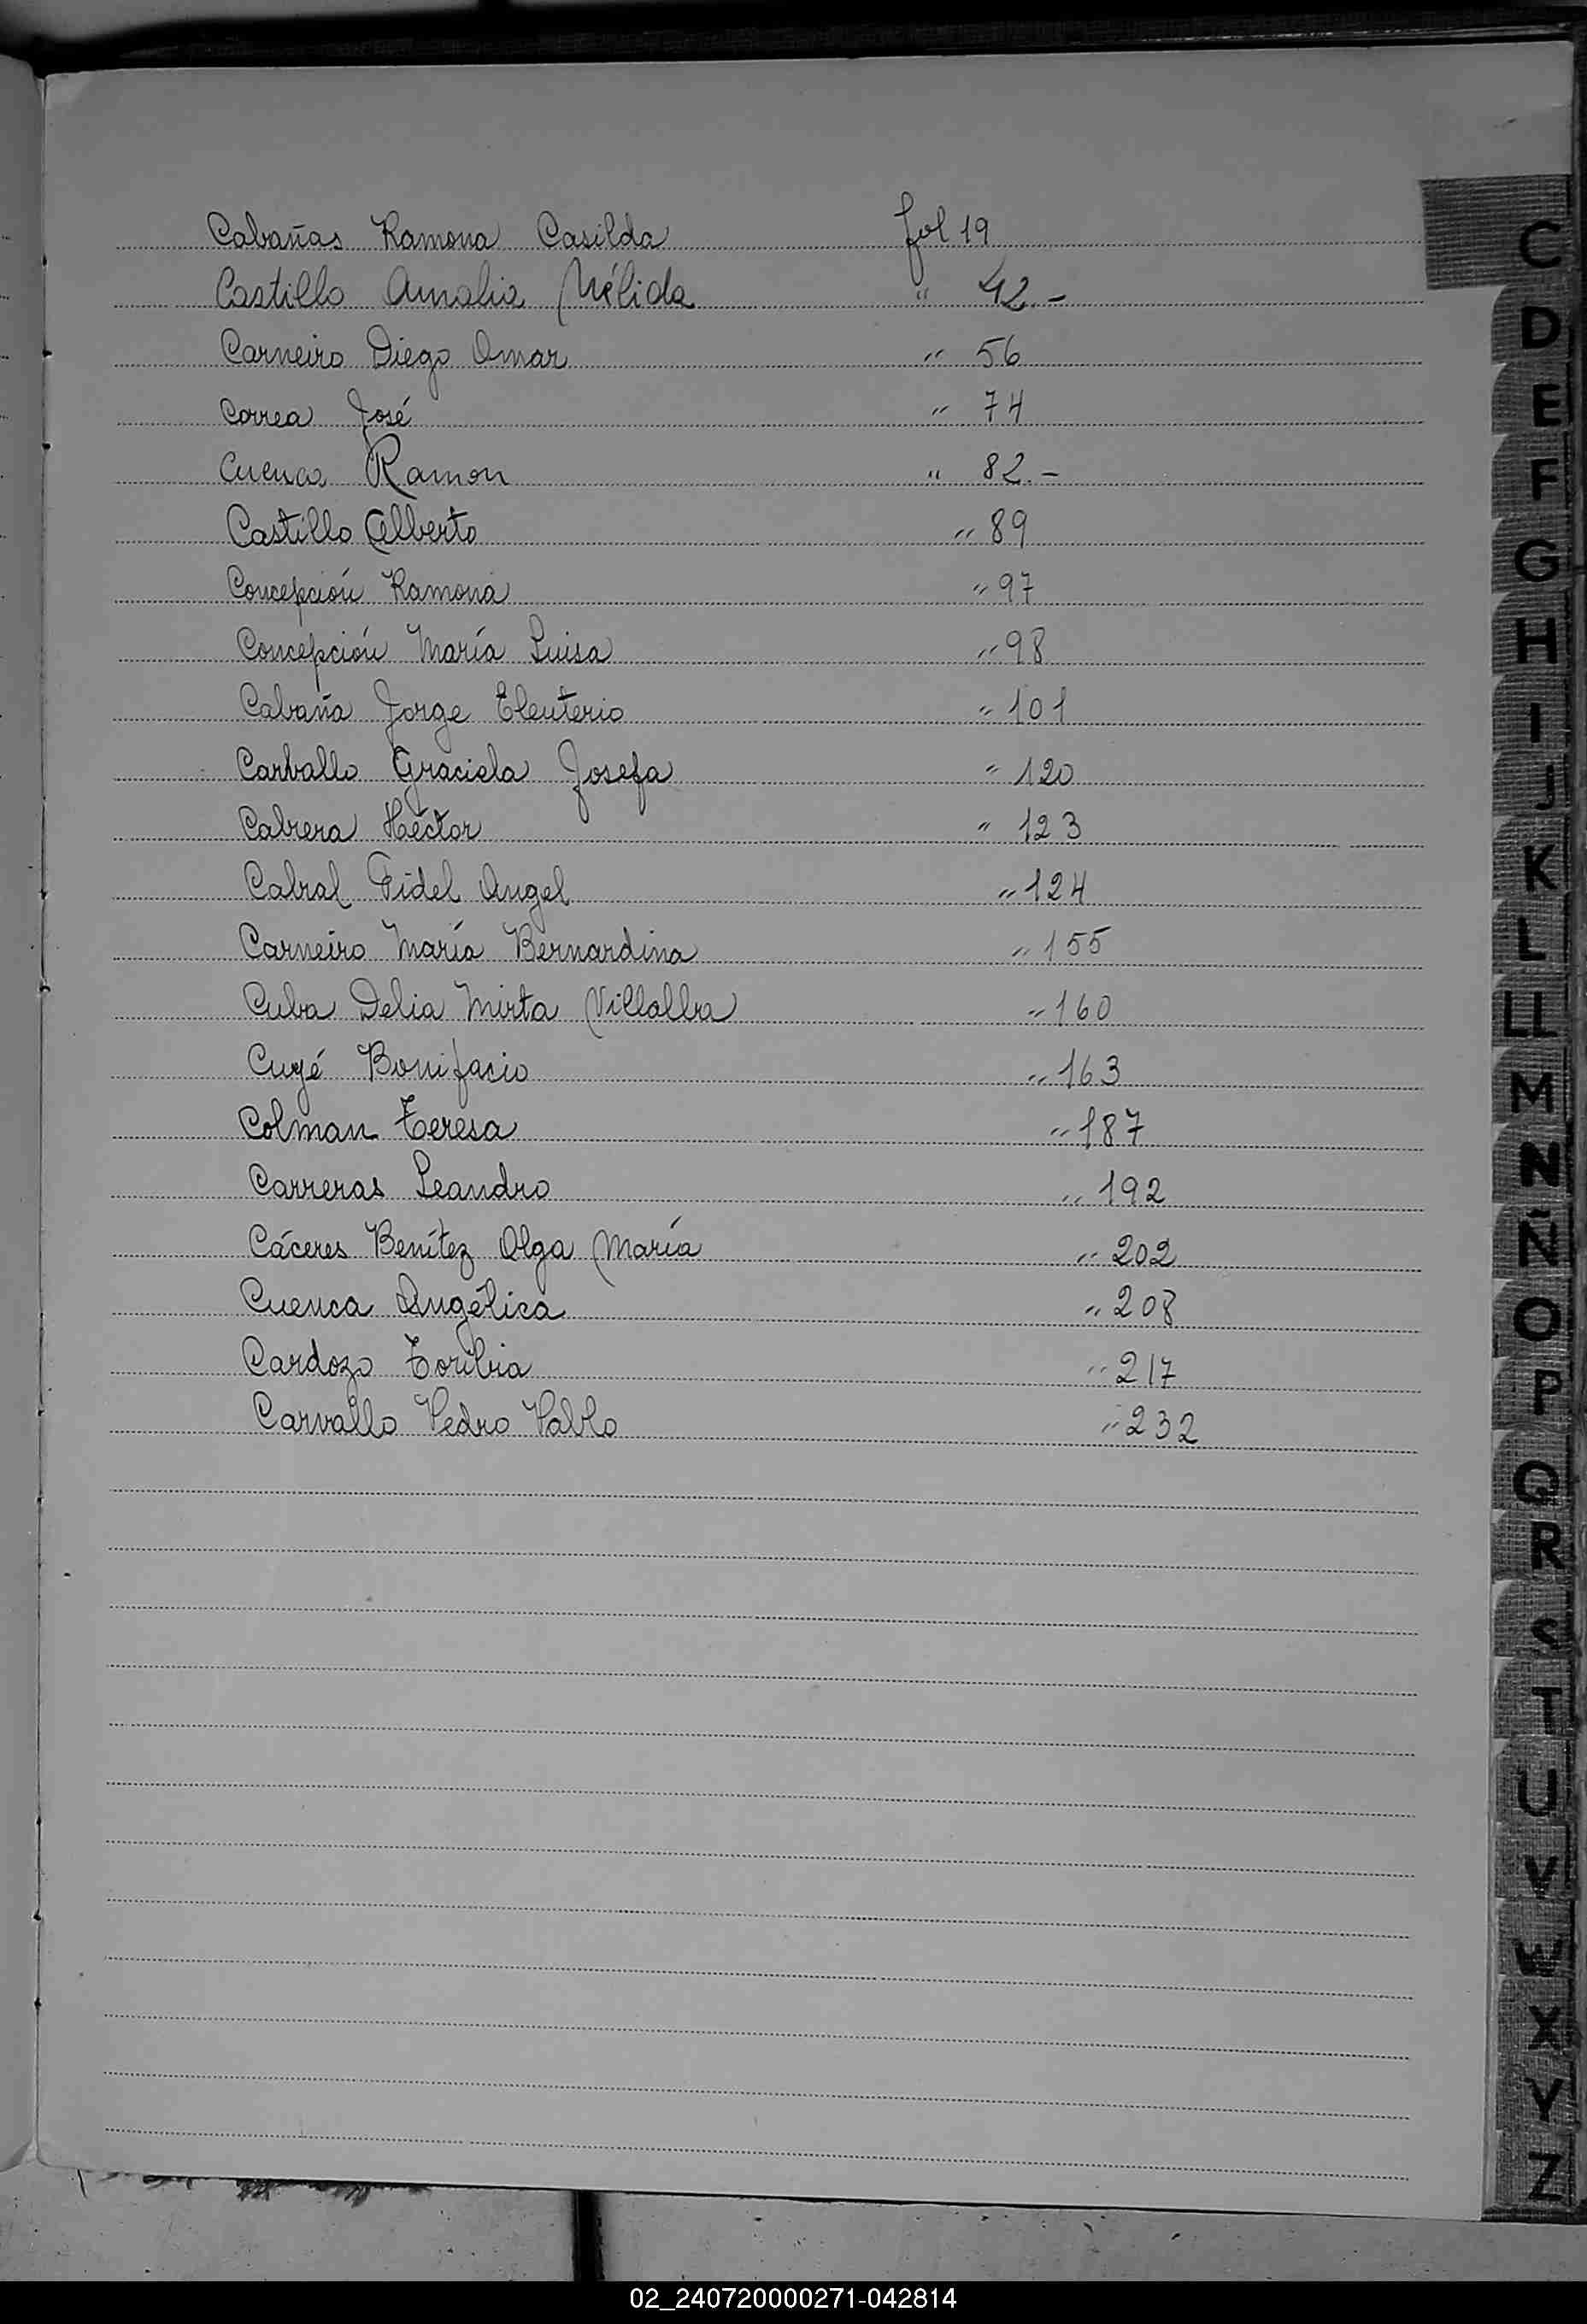 Cabañas Ramona Casilda fol 19
Castillo Amalia Nélida " 42.-
Carneiro Diego Omar " 56
Correa José " 74
Cuenca Ramon " 82.-
Castillo Alberto " 89
Concepción Ramona " 97
Concepción María Luisa " 98
Cabaña Jorge Eleuterio " 101
Carballo Graciela Josefa " 120
Cabrera Héctor " 123
Cabral Fidel Angel " 124
Carneiro María Bernardina " 155
Cuba Delia Mirta Villalba " 160
Cugé Bonifacio " 163
Colman Teresa " 187
Carreras Leandro " 192
Cáceres Benítez Olga María " 202
Cuenca Angélica " 208
Cardozo Toribia " 217
Carvallo Pedro Pablo " 232
C
D
E
F
G
H
I
J
K
L
LL
M
N
Ñ
O
P
Q
R
S
T
U
V
W
X
Y
Z
02_240720000271-042814